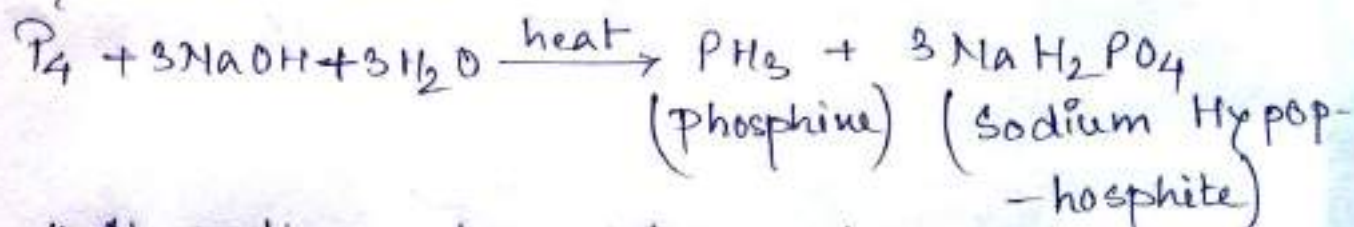 P₄ + 3NaOH + 3H₂O —heat→ PH₃ + 3NaH₂PO₄
(Phosphine) (Sodium Hypop-
-hosphite)